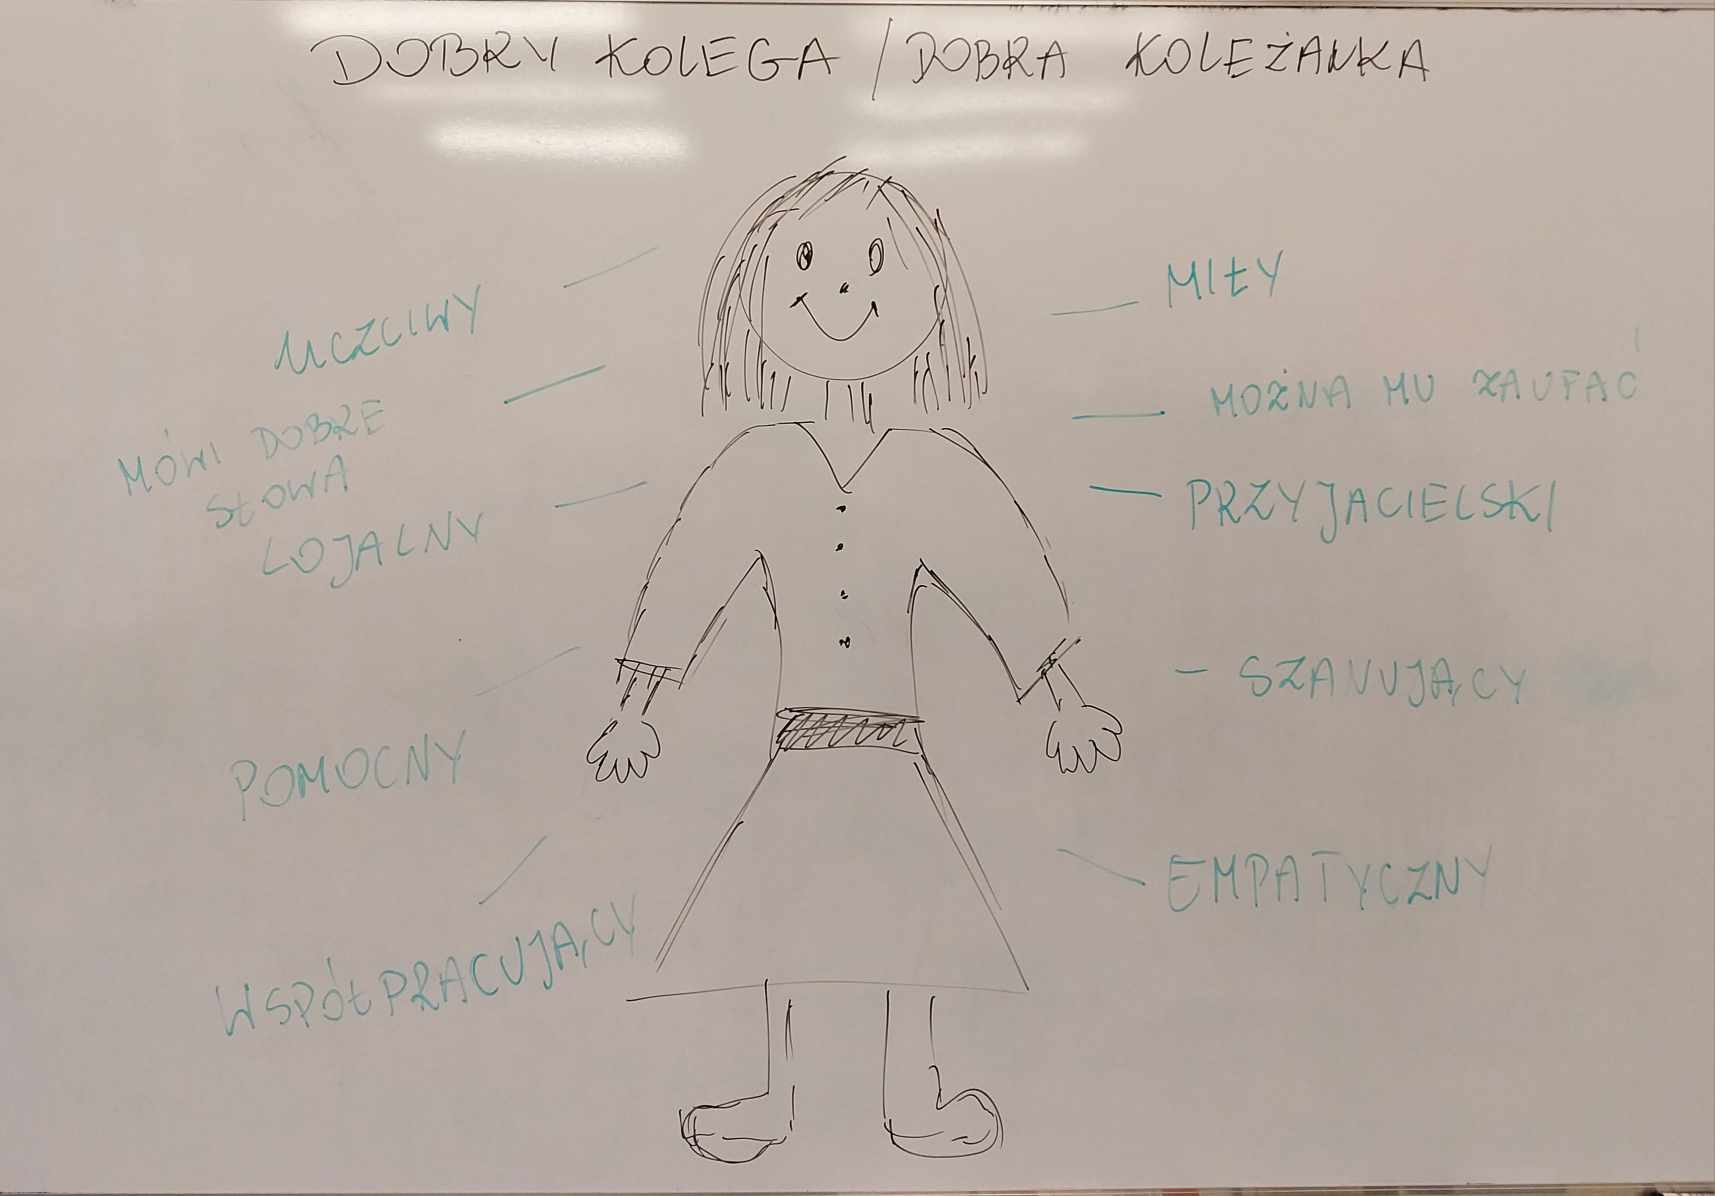 DOBRY KOLEGA / DOBRA KOLEŻANKA
UCZCIWY
MÓWI DOBRE
SŁOWA
LOJALNY
POMOCNY
WSPÓŁPRACUJĄCY
MIŁY
MOŻNA MU ZAUFAĆ
PRZYJACIELSKI
- SZANUJĄCY
EMPATYCZNY